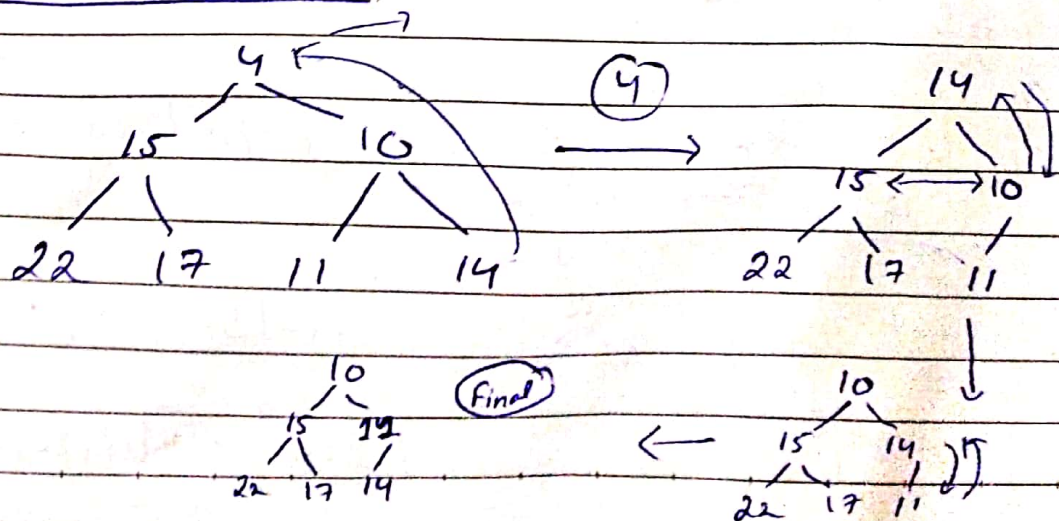 4
15 10
22 17 11 14
4
14
15 10
22 17 11
10
15 14
22 17 11
Final
10
15 11
22 17 14